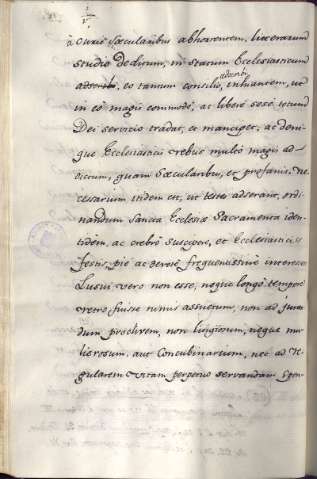 à Curis Sæcularibus abhorrentem, litterarum
studio deditum, in statum Ecclesiasticum
adscribi
eo tantum consilio, exhortantem, ut
in eo magis commodè, ac liberè sese totum
Dei servicio tradat, et mancipet, ac deni-
que Ecclesiasticis rebus multò magis ad-
dictum, quam Sæcularibus, et profanis. Ne-
cessarium itidem est, ut testes adserant, ordi-
nandum Sancta Ecclesiæ Sacramenta iden-
tidem, ac crebrò suscipere, et Ecclesiasticis
festis, piè ac devotè
Lusui vero non esse, neque longo tempore
retro fuisse nimis assuetum, non ad juran-
dum proclivem, non litigiosum, neque mu-
lierosum, aut Concubinarium, nec ad re-
gularem vitam perpetuo servandam Spon-